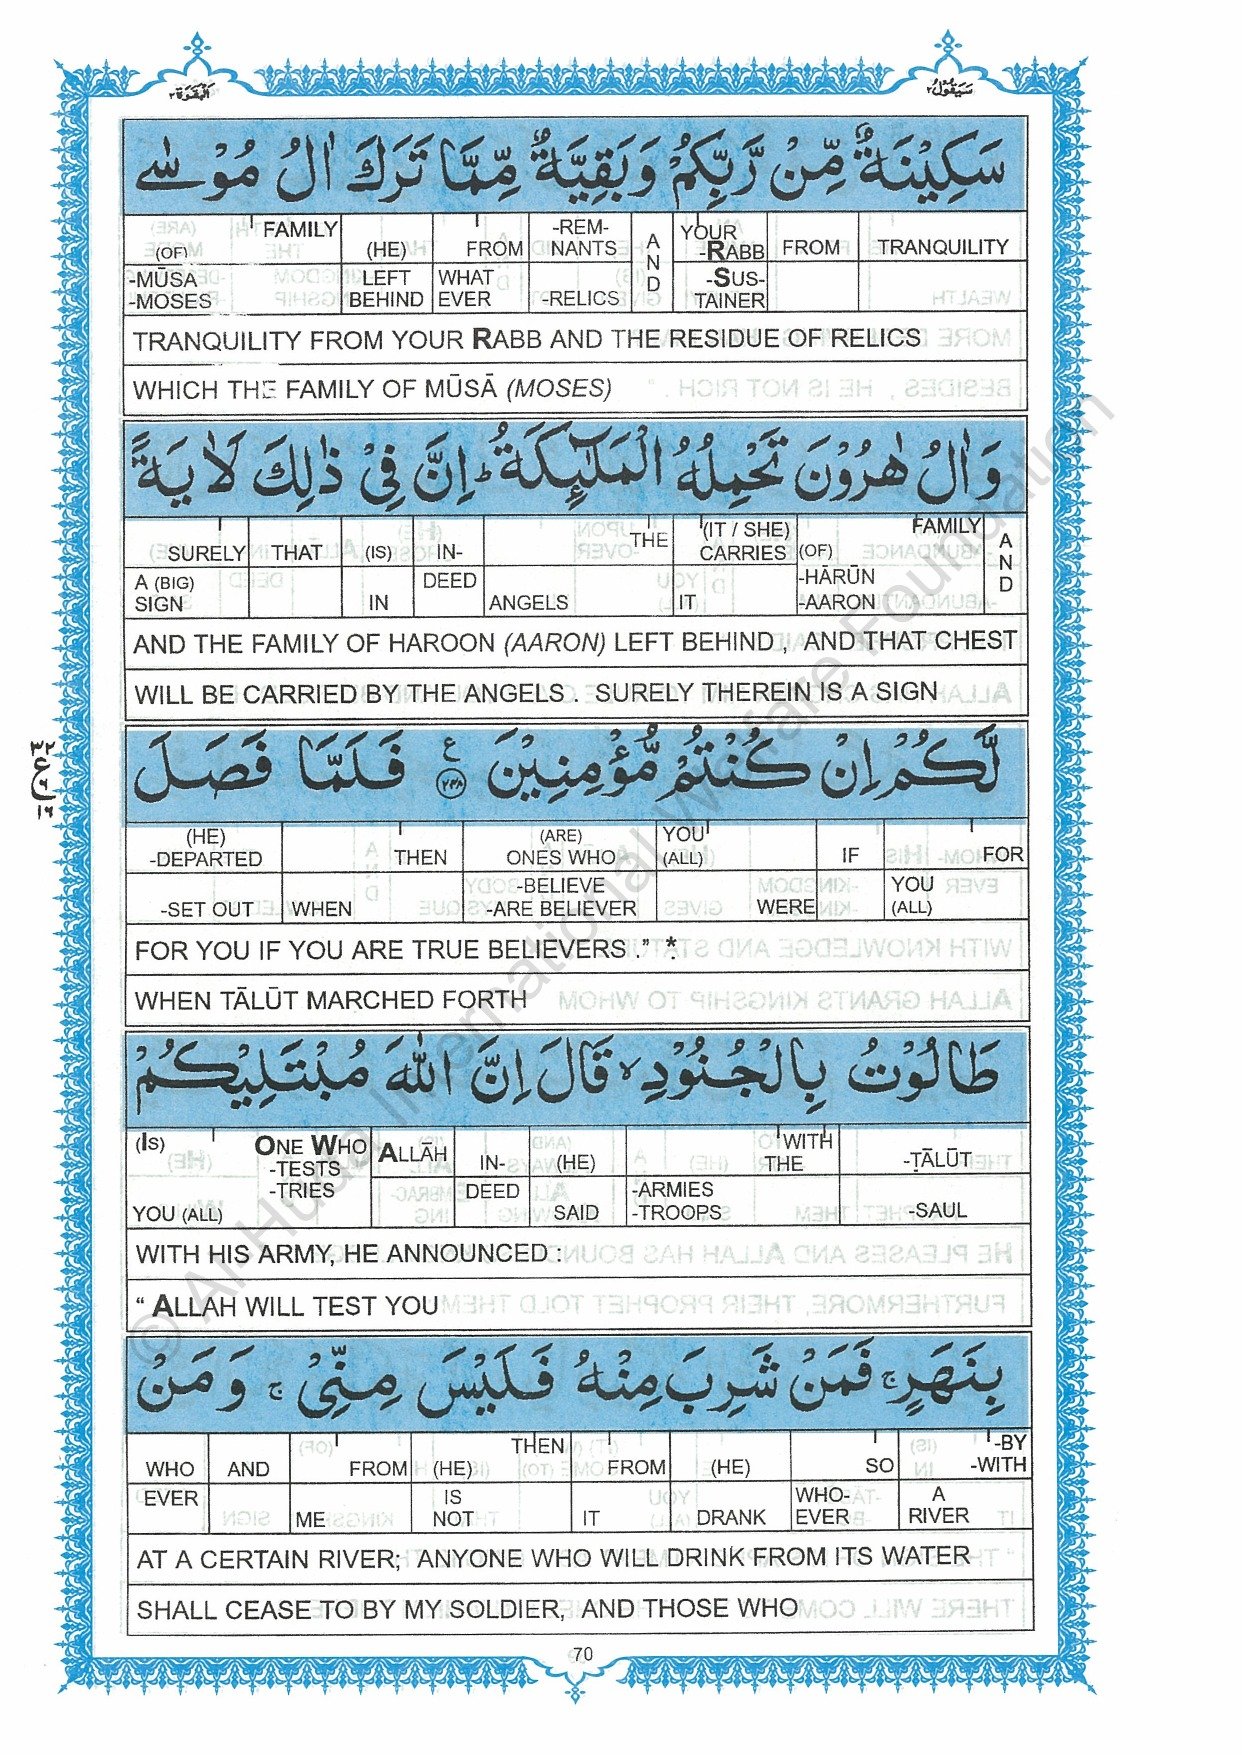 البقرة ٢
سيقول ٢
سَكِيْنَةٌ مِّنْ رَّبِّكُمْ وَبَقِيَّةٌ مِّمَّا تَرَكَ اٰلُ مُوْسٰى
FAMILY (OF) -MŪSA -MOSES | (HE) LEFT BEHIND | FROM WHAT EVER | -REM-NANTS -RELICS | AND | YOUR -RABB -SUS-TAINER | FROM | TRANQUILITY
TRANQUILITY FROM YOUR RABB AND THE RESIDUE OF RELICS
WHICH THE FAMILY OF MŪSĀ (MOSES)
وَاٰلُ هٰرُوْنَ تَحْمِلُهُ الْمَلٰٓئِكَةُ ؕ اِنَّ فِيْ ذٰلِكَ لَاٰيَةً
SURELY A (BIG) SIGN | THAT | (IS) IN | IN-DEED | THE ANGELS | (IT / SHE) CARRIES IT | FAMILY (OF) -HĀRŪN -AARON | AND
AND THE FAMILY OF HAROON (AARON) LEFT BEHIND , AND THAT CHEST
WILL BE CARRIED BY THE ANGELS . SURELY THEREIN IS A SIGN
لَّكُمْ اِنْ كُنْتُمْ مُّؤْمِنِيْنَ ع ٢٤٨ فَلَمَّا فَصَلَ
(HE) -DEPARTED -SET OUT | THEN WHEN | (ARE) ONES WHO -BELIEVE -ARE BELIEVER | YOU (ALL) WERE | IF | FOR YOU (ALL)
FOR YOU IF YOU ARE TRUE BELIEVERS . ” *
WHEN TĀLŪT MARCHED FORTH
طَالُوْتُ بِالْجُنُوْدِ ۙ قَالَ اِنَّ اللّٰهَ مُبْتَلِيْكُمْ
(IS) ONE WHO -TESTS -TRIES YOU (ALL) | ALLĀH | IN-DEED | (HE) SAID | WITH THE -ARMIES -TROOPS | -ṬĀLŪT -SAUL
WITH HIS ARMY, HE ANNOUNCED :
“ ALLAH WILL TEST YOU
بِنَهَرٍ ۚ فَمَنْ شَرِبَ مِنْهُ فَلَيْسَ مِنِّيْ ۚ وَمَنْ
WHO EVER | AND | FROM ME | THEN (HE) IS NOT | FROM IT | (HE) DRANK | SO WHO-EVER | -BY -WITH A RIVER
AT A CERTAIN RIVER; ANYONE WHO WILL DRINK FROM ITS WATER
SHALL CEASE TO BY MY SOLDIER, AND THOSE WHO
70
© Al-Huda International Welfare Foundation